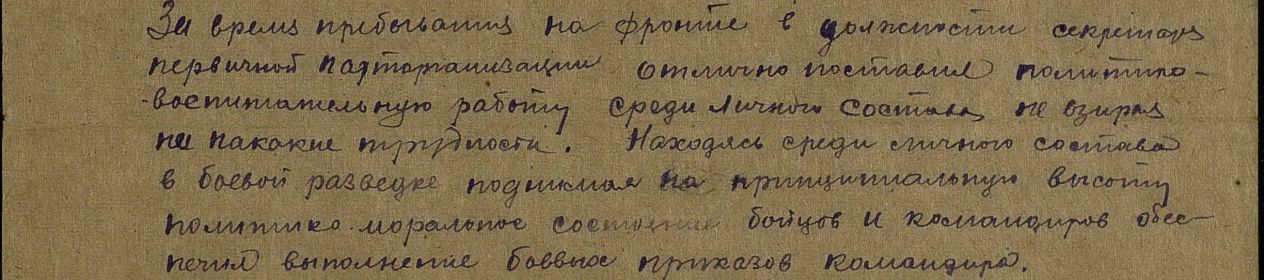 За время пребывания на фронте в должности секретаря
первичной парторганизации отлично поставил политико-
-воспитательную работу среди личного состава не взирая
ни на какие трудности. Находясь среди личного состава
в боевой разведке поднимая на принципиальную высоту
политико-моральное состояние бойцов и командиров обес-
печил выполнение боевых приказов командира.